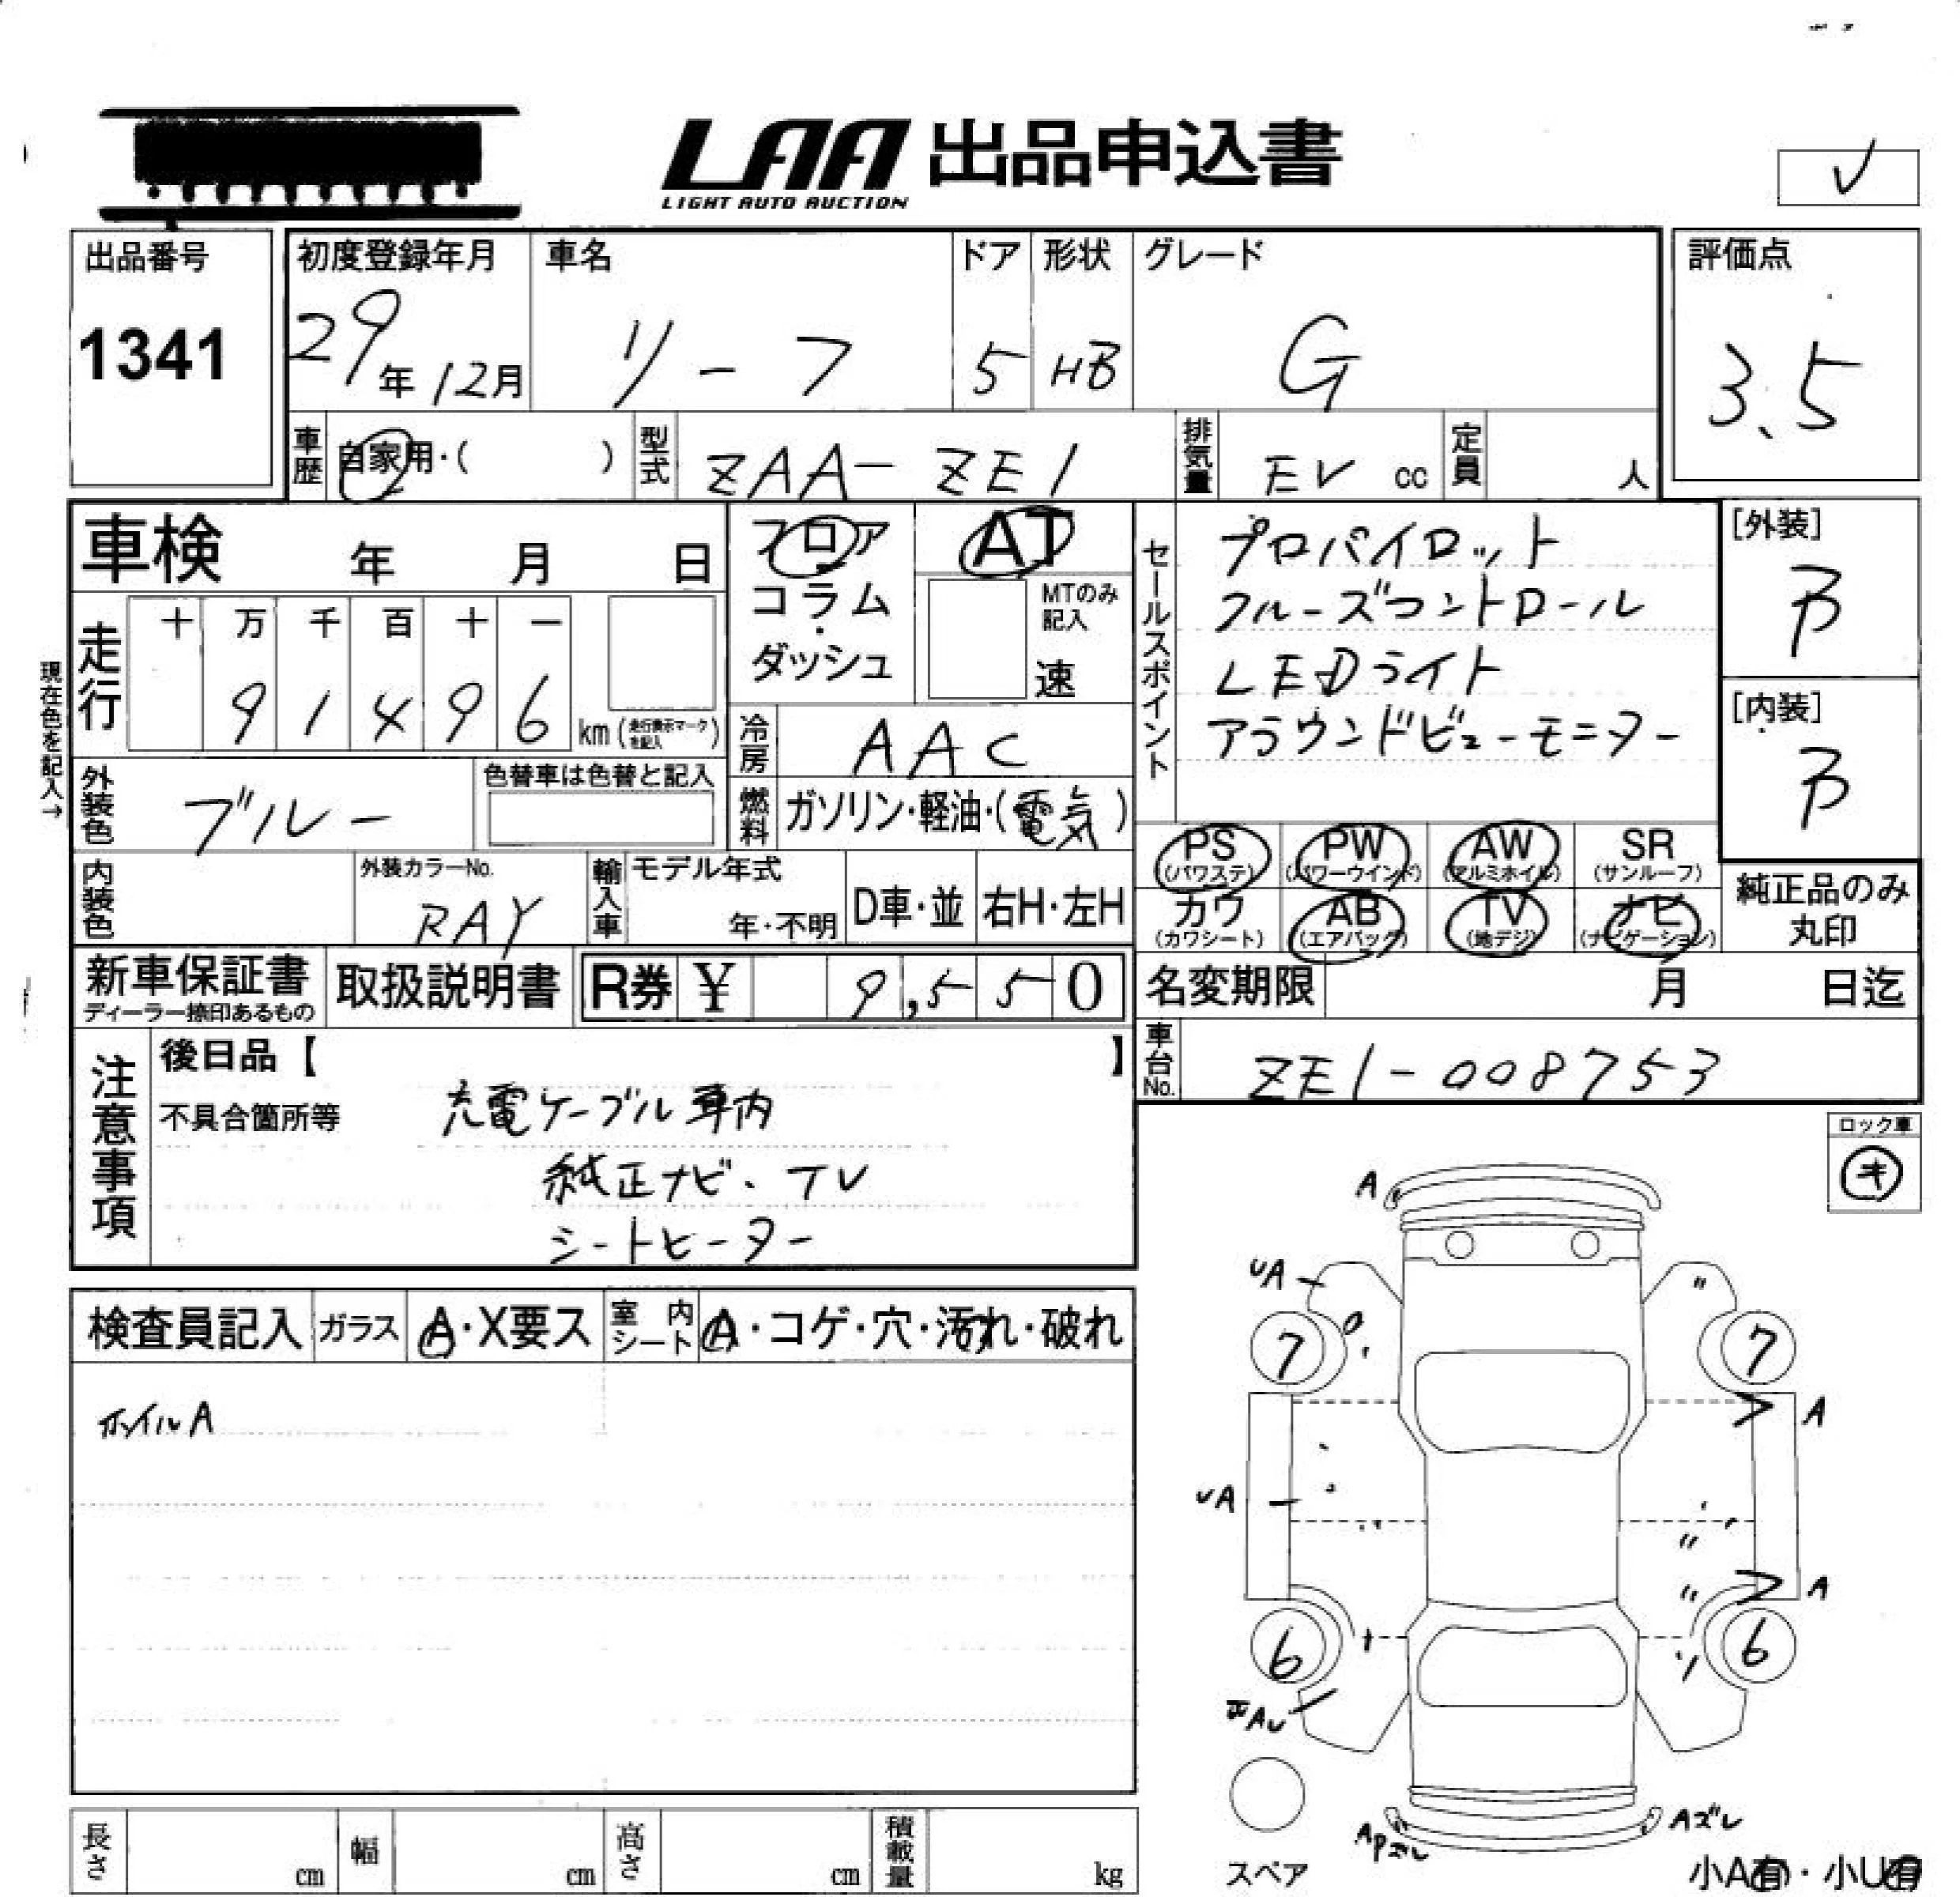 LAA 出品申込書
LIGHT AUTO AUCTION
出品番号
1341
初度登録年月
29年12月
車名
リーフ
ドア
5
形状
HB
グレード
G
評価点
3.5
車歴
自家用・( )
型式
ZAA-ZE1
排気量
EV cc
定員
人
車検 年 月 日
フロア
コラム・
ダッシュ
AT
MTのみ記入
速
セールスポイント
プロパイロット
クルーズコントロール
LEDライト
アラウンドビューモニター
[外装]
B
[内装]
B
現在色を記入→
走行
十 万 千 百 十 一
9 1 4 9 6 km(走行表示マークを記入)
冷房
AAC
外装色
ブルー
色替車は色替と記入
燃料
ガソリン・軽油・(電気)
内装色
外装カラーNo.
RAY
輸入車
モデル年式
年・不明
D車・並
右H・左H
PS (パワステ)
PW (パワーウインド)
AW (アルミホイル)
SR (サンルーフ)
カワ (カワシート)
AB (エアバッグ)
TV (地デジ)
ナビ (ナビゲーション)
純正品のみ
丸印
新車保証書
ディーラー捺印あるもの
取扱説明書
R券 ¥ 9,550
名変期限 月 日迄
車台No.
ZE1-008753
注意事項
後日品【 】
不具合箇所等
充電ケーブル車内
純正ナビ、TV
シートヒーター
ロック車
キ
検査員記入
ガラス
A・X要ス
室内シート
A・コゲ・穴・汚れ・破れ
ホイルA
A
UA
〃
7
7
A
UA
〃
〃
A
6
6
APズレ
Aズレ
スペア
小A有・小U有
長さ cm
幅 cm
高さ cm
積載量 kg